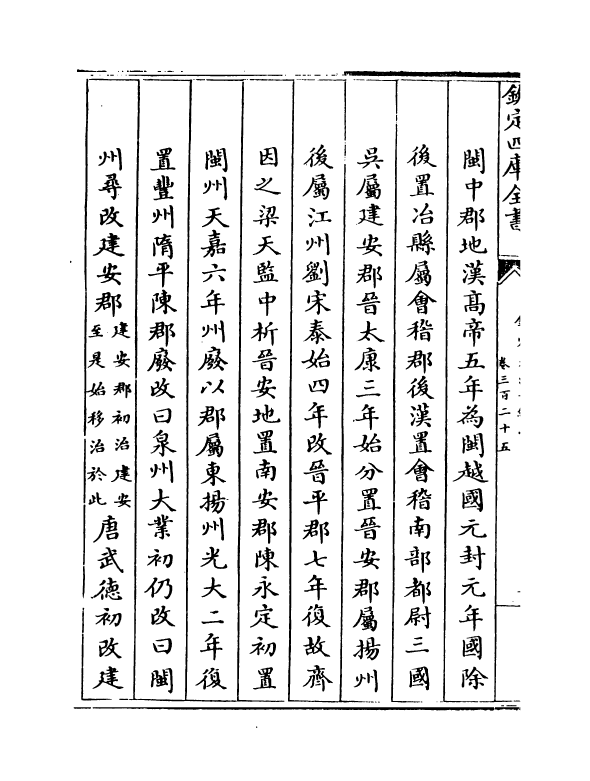 欽定四庫全書
卷三百二十五
閩中郡地漢髙帝五年為閩越國元封元年國除
後置冶縣屬會稽郡後漢置會稽南部都尉三國
吳屬建安郡晉太康三年始分置晉安郡屬揚州
後屬江州劉宋泰始四年改晉平郡七年復故齊
因之梁天監中析晉安地置南安郡陳永定初置
閩州天嘉六年州廢以郡屬東揚州光大二年復
置豐州隋平陳郡廢改曰泉州大業初仍改曰閩
州尋改建安郡建安郡初治建安至是始移治於此唐武德初改建